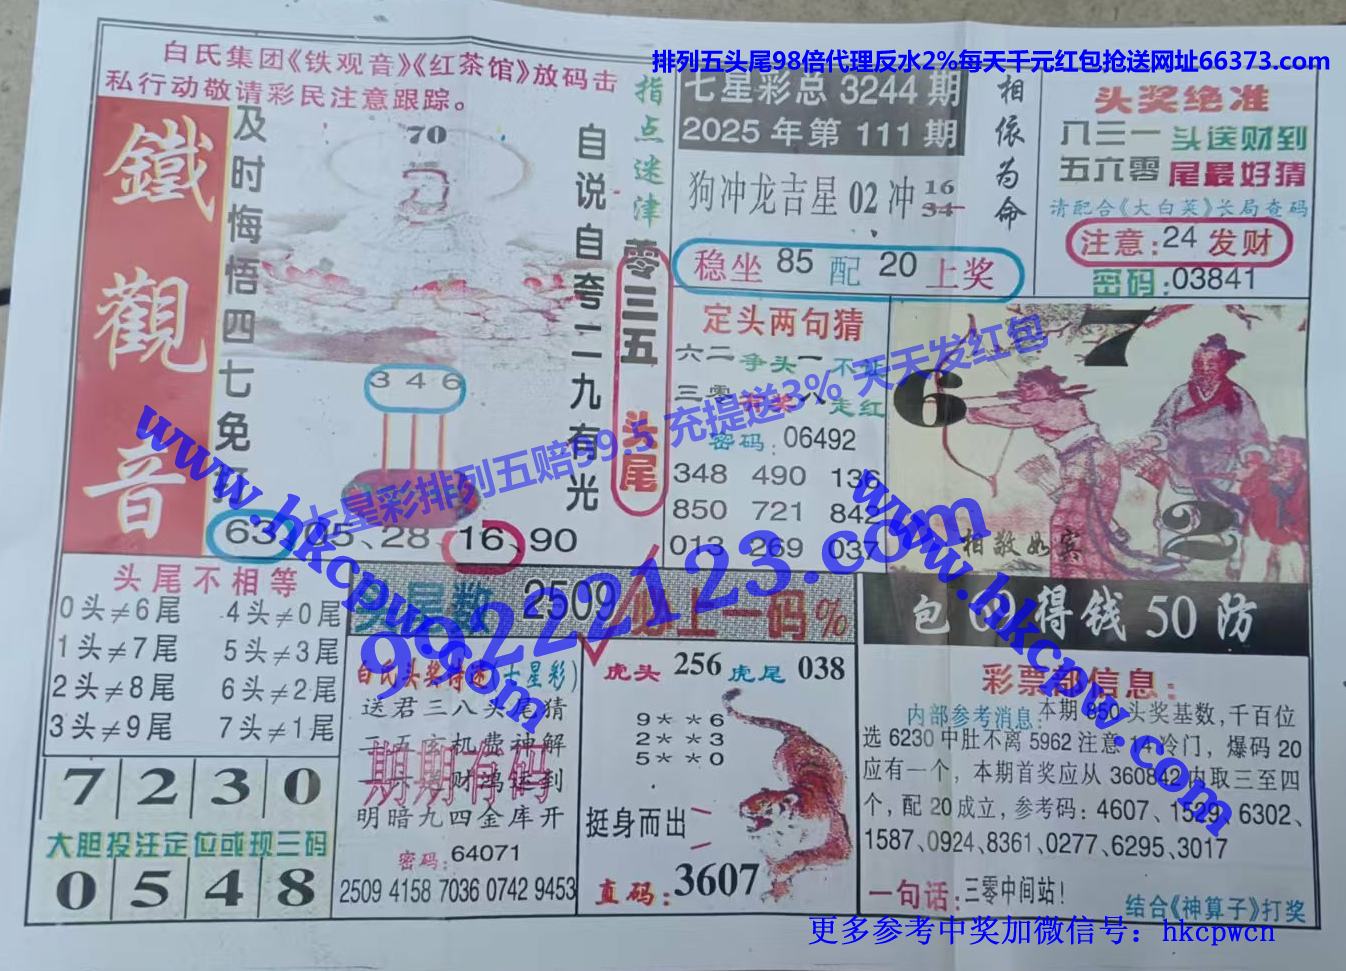 白氏集团《铁观音》《红茶馆》放码击
私行动敬请彩民注意跟踪。
鐵觀音
及时悔悟四七免
70
自说自夸二九有光
3 4 6
63、05、28、16、90
指点迷津
零三五
头尾
排列五头尾98倍代理反水2%每天千元红包抢送网址66373.com
七星彩总 3244 期
2025 年第 111 期
狗冲龙吉星 02 冲 16
34
相依为命
稳坐 85 配 20 上奖
头奖绝准
八三一 头送财到
五六零 尾最好猜
请配合《大白菜》长局查码
注意:24 发财
密码:03841
定头两句猜
六二 争头 一
三零
八 走红
密码:06492
348 490 136
850 721 842
013 269 037
6
7
2
相敬如宾
得钱 50 防
七星彩排列五赔99.5 充提送3% 天天发红包
www.hkcpwcn.com
99222123.com
www.hkcpw.com
头尾不相等
0 头≠6 尾 4 头≠0 尾
1 头≠7 尾 5 头≠3 尾
2 头≠8 尾 6 头≠2 尾
3 头≠9 尾 7 头≠1 尾
7 2 3 0
大胆投注定位或现三码
0 5 4 8
2509
上一码%
送君三八头尾猜
明暗九四金库开
期期有码
密码:64071
2509 4158 7036 0742 9453
虎头 256 虎尾 038
9**6
2**3
5**0
挺身而出
直码:3607
彩票部信息:
内部参考消息:本期 850 头奖基数,千百位
选 6230 中肚不离 5962 注意 14 冷门，爆码 20
应有一个，本期首奖应从 360842 内取三至四
个，配 20 成立，参考码：4607、1529、6302、
1587、0924、8361、0277、6295、3017
一句话:三零中间站!
结合《神算子》打奖
更多参考中奖加微信号：hkcpwcn